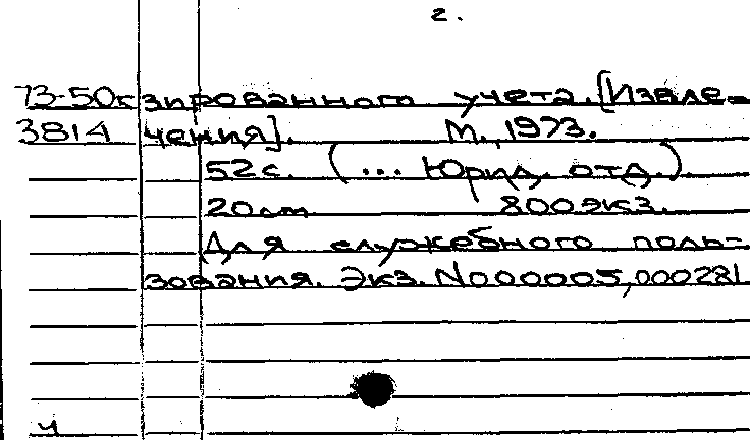 г.
73-50к зированного учета. [Извле-
3814 чения]. М., 1973.
52 с. (... Юрид. отд.).
20 см 800 экз.
Для служебного поль-
зования. Экз. N000005,000281
ч